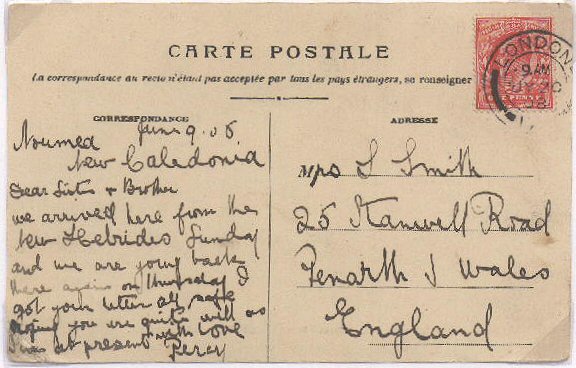 CARTE POSTALE
La correspondance au recto n'étant pas acceptée par tous les pays étrangers, se renseigner
CORRESPONDANCE
ADRESSE
LONDON
9 AM
ONE PENNY
Noumea June 9. 08
New Caledonia
Dear Sister & Brother
we arrived here from the
New Hebrides Sunday
and we are going back
there again on thursday I
got your letter all safe
you are quite well as
I am at present with love
Percy
Mrs S Smith
25 Stanwell Road
Penarth S Wales
England